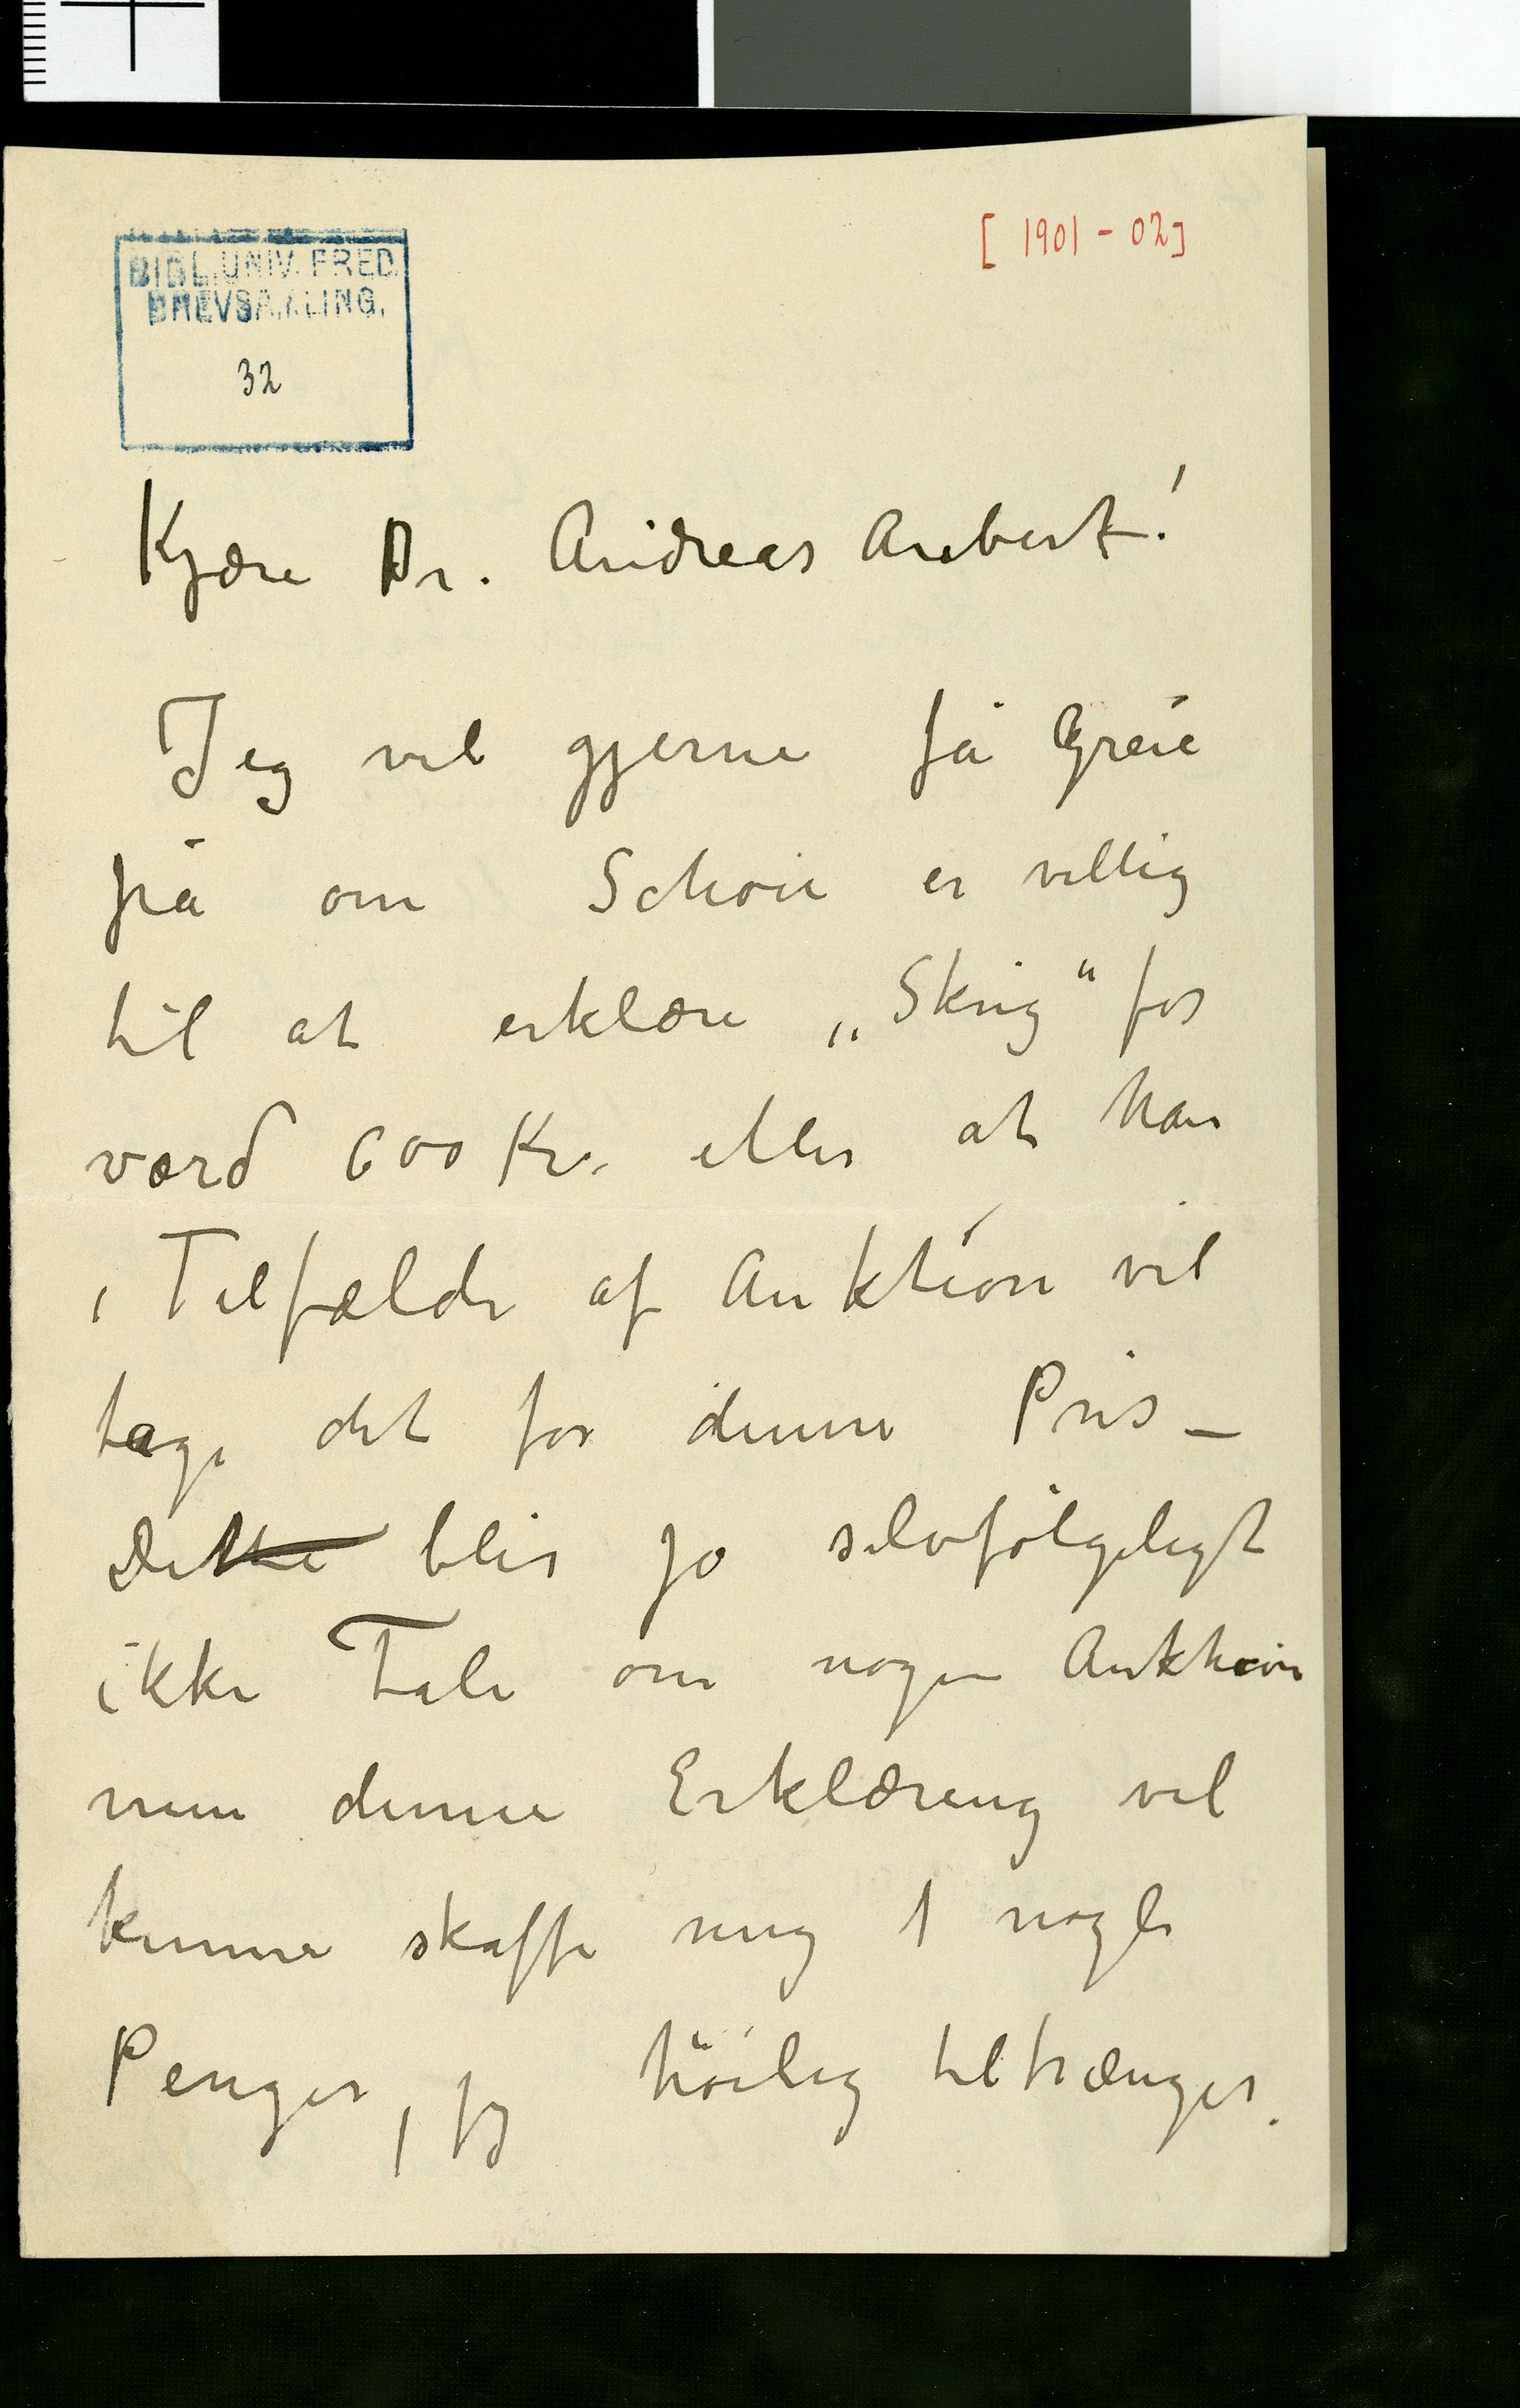 [ 1901 - 02]
BIBL. UNIV. FRED.
BREVSAMLING.
32
Kjære Dr. Andreas Aubert!
Jeg vil gjerne få Greie
på om Schou er villig
til at erklære „Skrig“ for
værd 600 Kr. eller at han
i Tilfælde af Auktion vil
tage det for denne Pris –
Dette blir jo selvfølgeligt
ikke Tale om nogen Auktion
men denne Erklæring vil
kunne skaffe mig nogle
Penger, jeg høilig tiltrænger.